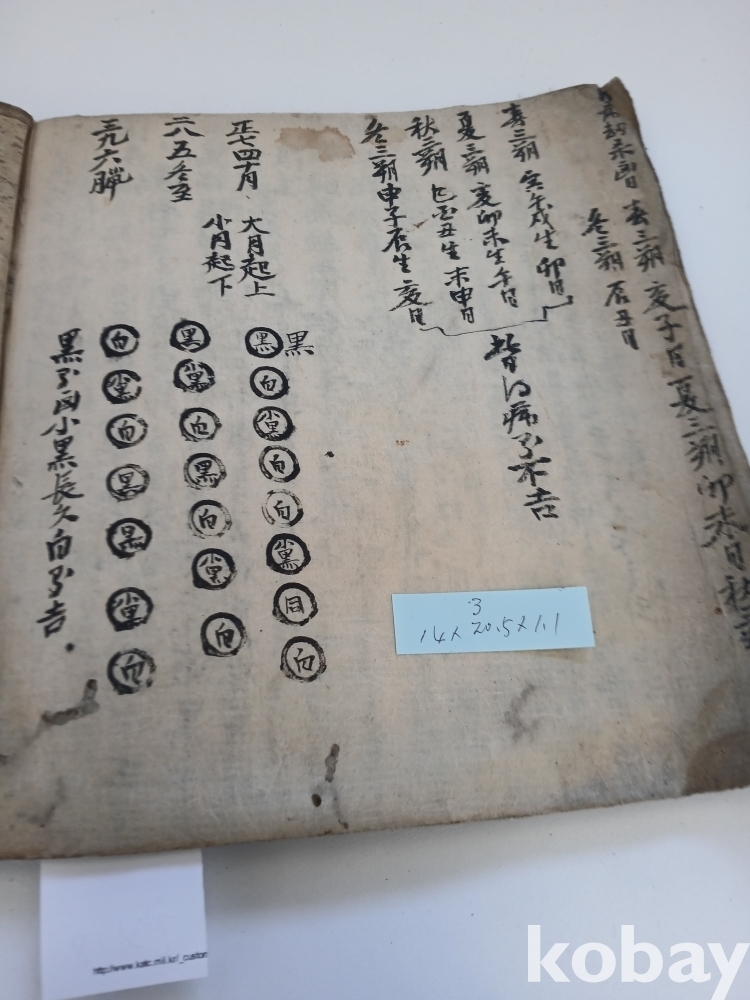 春三朔 亥子日 夏三朔 卯未日 秋三
冬三朔 辰丑日
春三朔 寅午戌生 卯日
夏三朔 亥卯未生 午日
秋三朔 巳酉丑生 未申日
冬三朔 申子辰生 亥日
皆 病 不吉
正七四十月
大月起上
小月起下
二八五冬至
三九六臘
黑
黑 白 小黑 白 白 小黑 同 白
黑 小黑 白 黑 白 小黑 白
白 小黑 白 黑 黑 小黑 白
黑 凶小黑長久白 吉
3
14x 20.5x1.1
http://www.katc.mil.kr/_custom
kobay